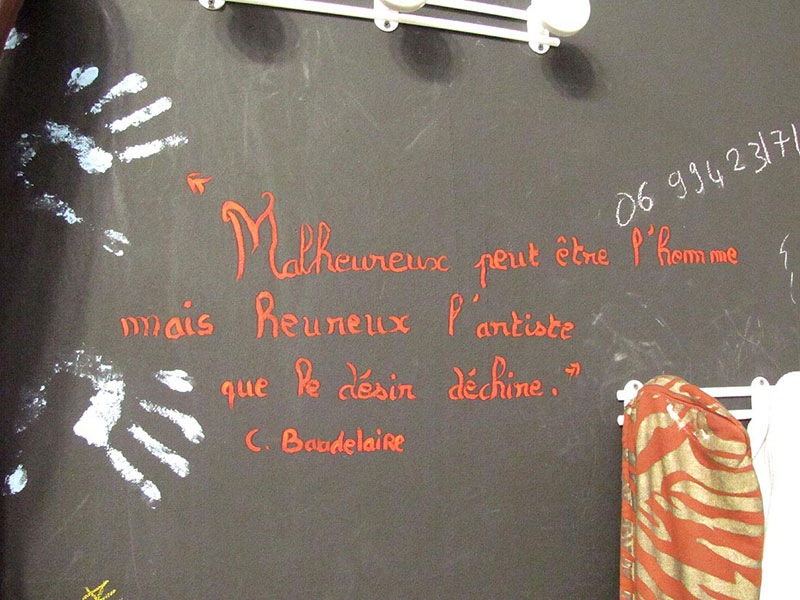 06 99423171
"Malheureux peut être l'homme
mais heureux l'artiste
que le désir déchire."
C. Baudelaire